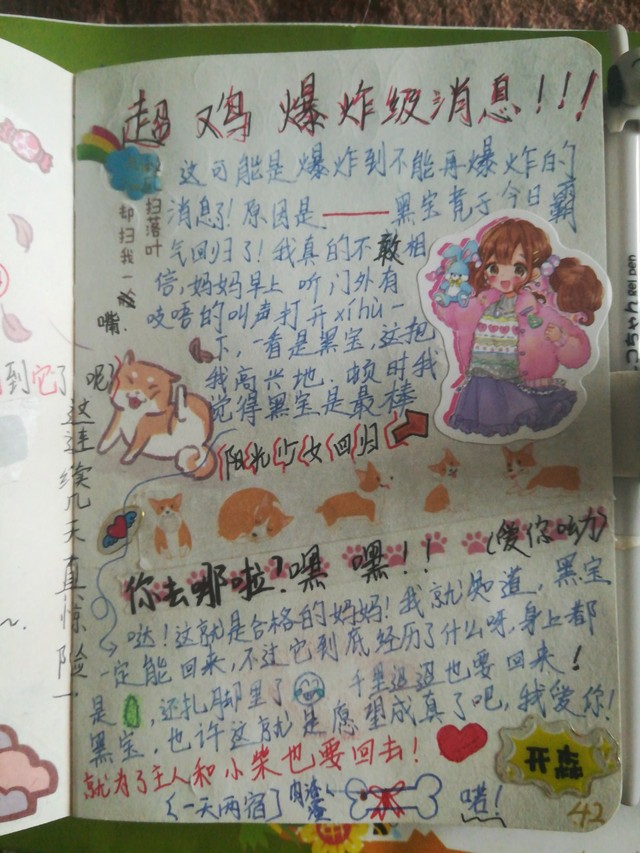 超鸡爆炸级消息!!!
这可能是爆炸到不能再爆炸的
消息了!原因是——黑宝竟于今日霸
气回归了!我真的不敢相
信,妈妈早上听门外有
吱唔的叫声打开xīhù一
下,一看是黑宝,这把
我高兴地.顿时我
觉得黑宝是最棒
扫落叶
却扫我一
嘴.
到它了
呢
这连续几天真惊险一
阳光少女回归
你去哪啦?嘿嘿!!
(爱你呦)
哒!这就是合格的妈妈!我就知道,黑宝
一定能回来,不过它到底经历了什么呀,身上都
是,还扎脚里了 千里迢迢也要回来!
黑宝,也许这就是愿望成真了吧,我爱你!
就为了主人和小柴也要回去!
[一天两宿]
喏!
开蒜
42